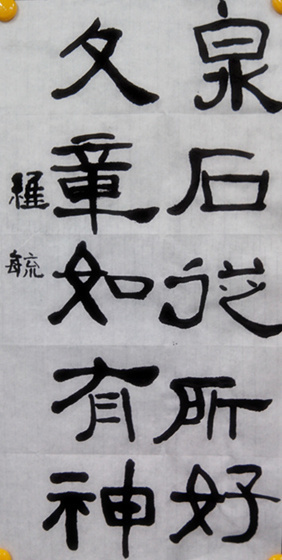 泉石從所好
文章如有神
毓